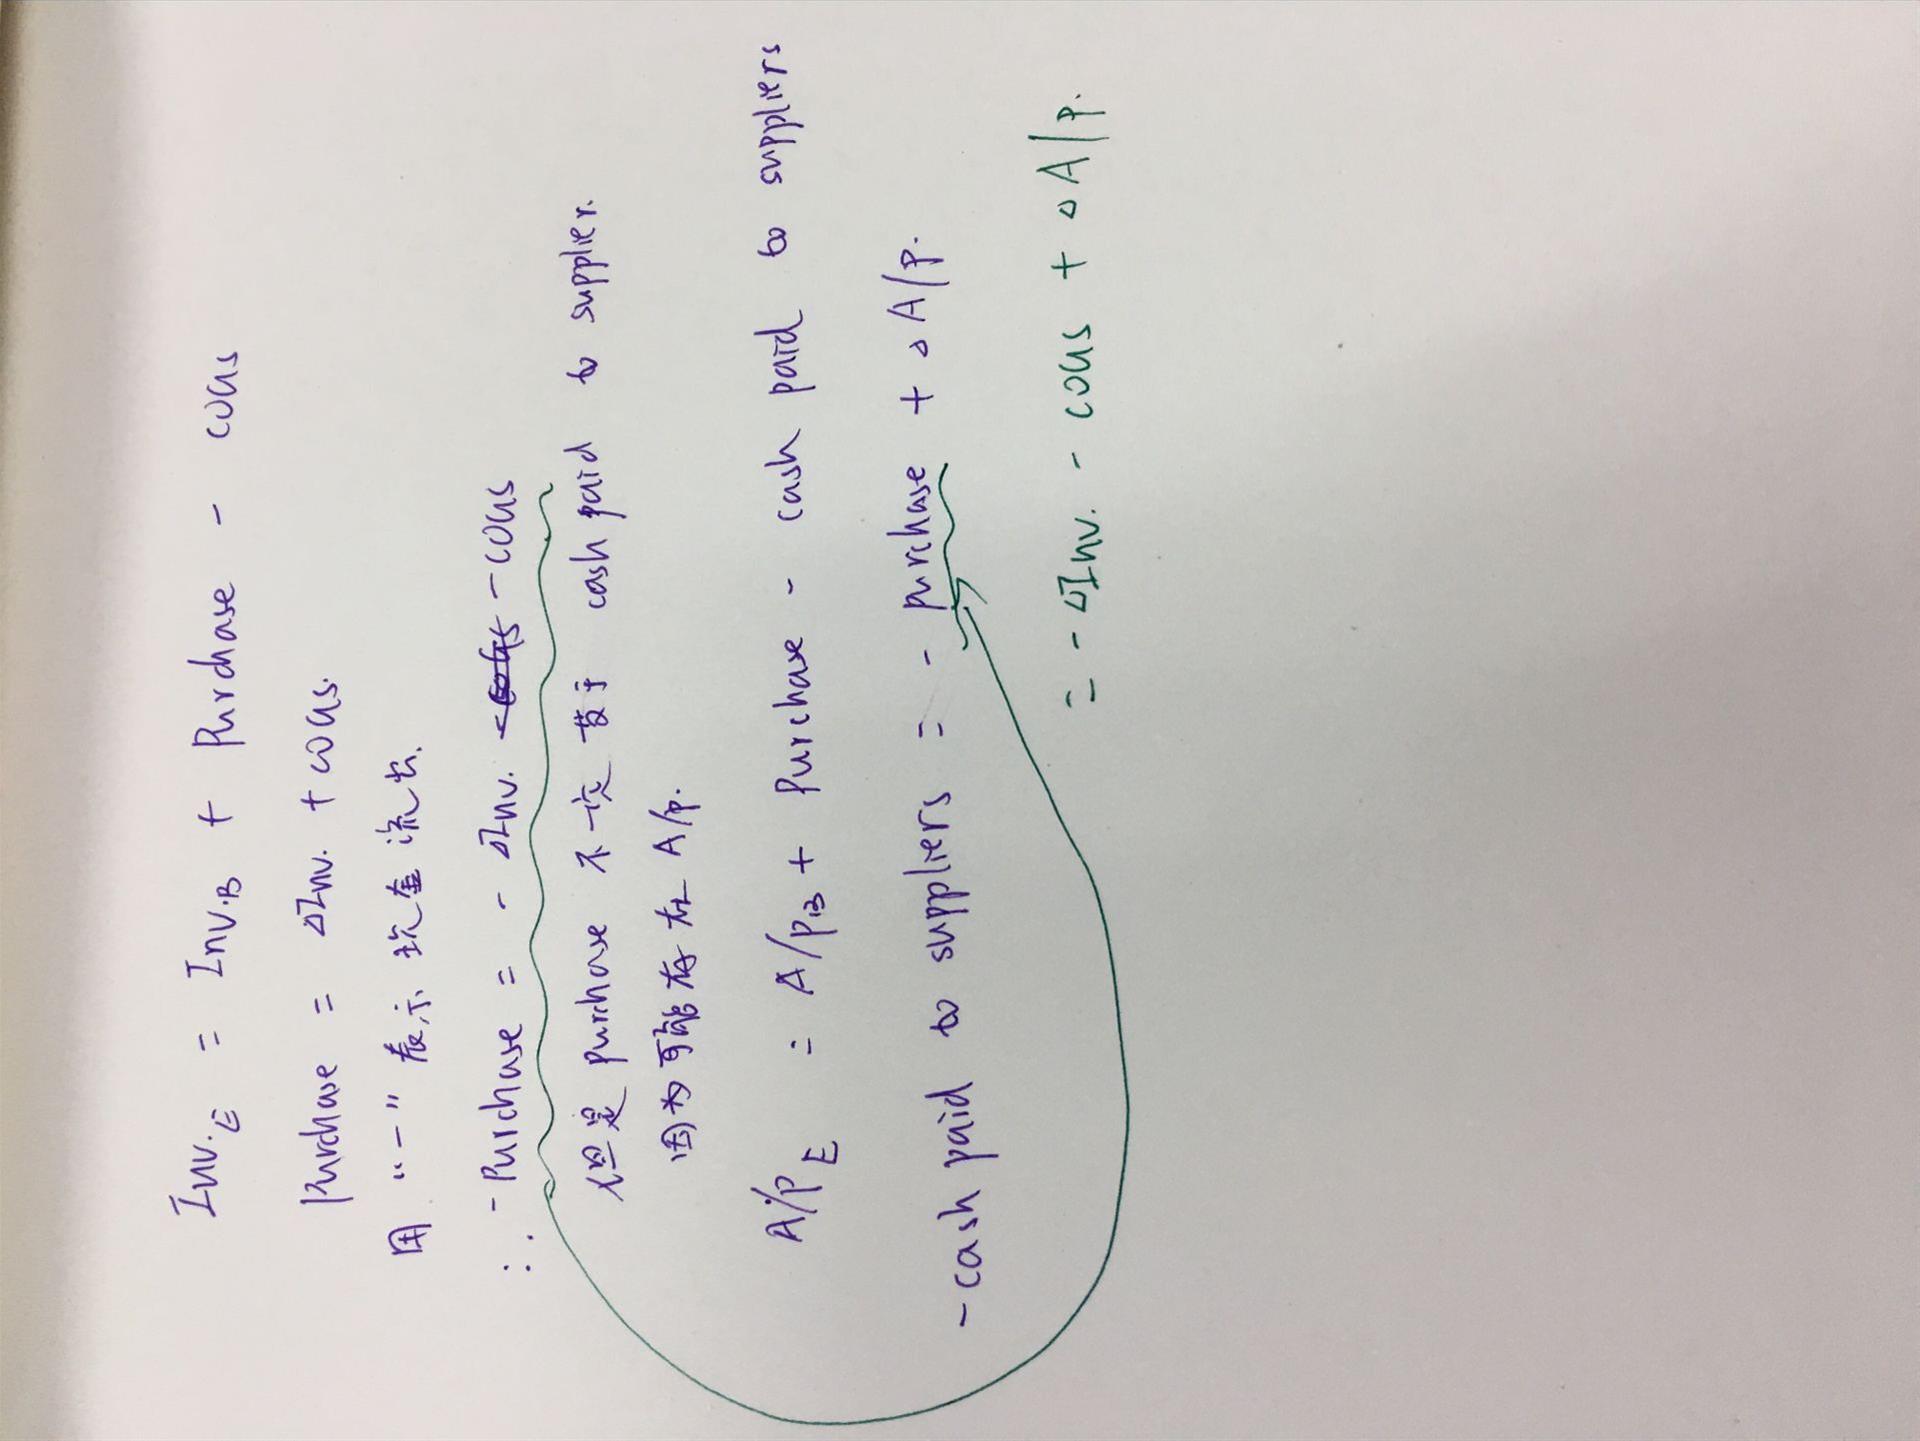 Inv.E = Inv.B + Purchase - COGS
Purchase = ΔInv. + COGS.
用 "-" 表示 现金流出.
∴ -Purchase = - ΔInv. - COGS
但是 purchase 不一定 等于 cash paid to supplier.
因为可能存在 A/p.
A/PE = A/PB + Purchase - cash paid to suppliers
-cash paid to suppliers = - purchase + ΔA/p.
= - ΔInv. - COGS + ΔA/p.